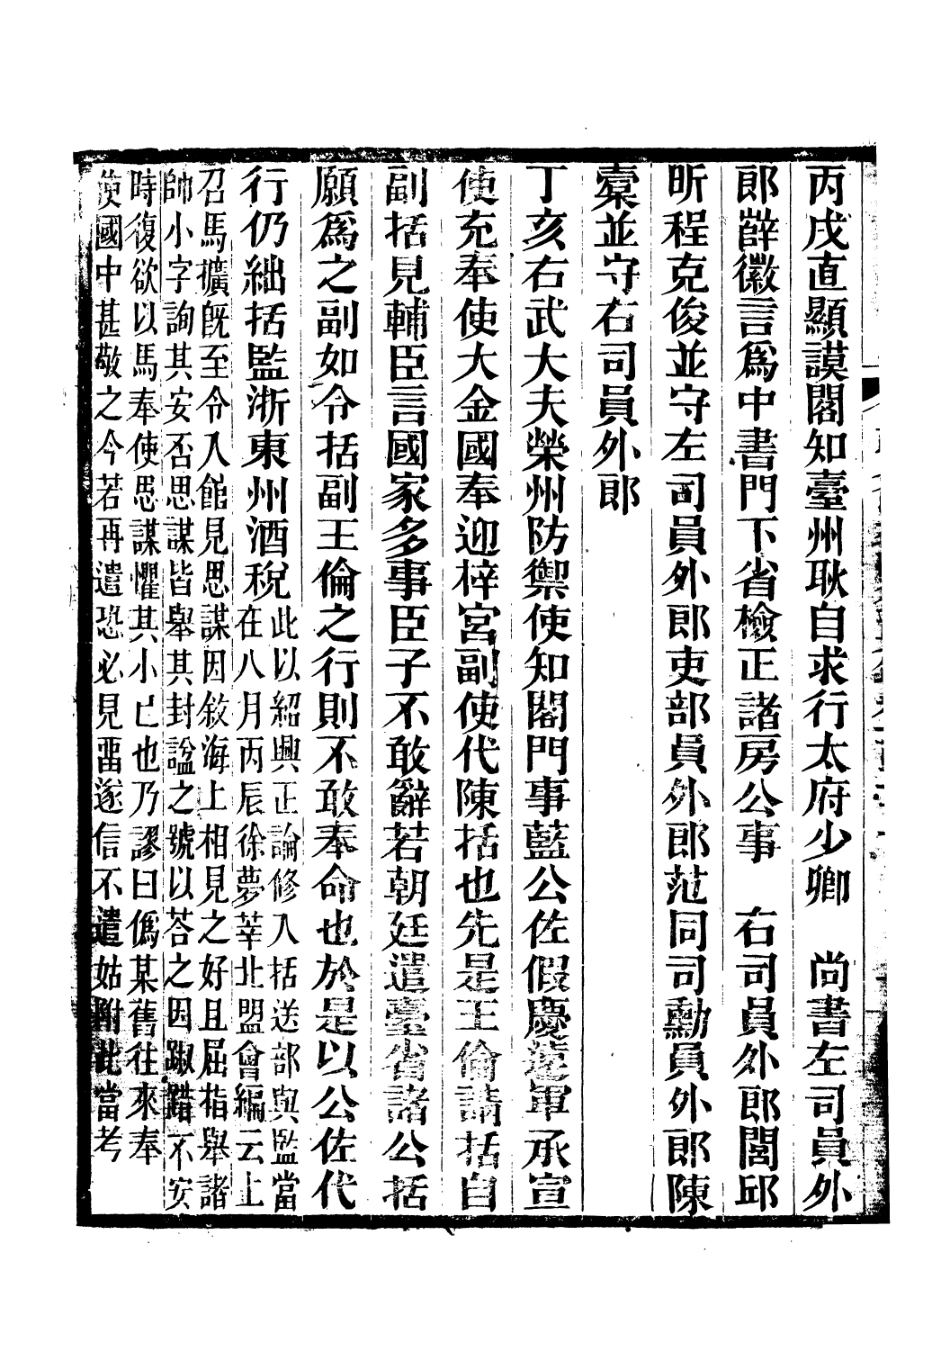 丙戌直顯謨閣知臺州耿自求行太府少卿　尚書左司員外
郎薛徽言爲中書門下省檢正諸房公事　右司員外郎閭邱
昕程克俊並守左司員外郎吏部員外郎范同司勳員外郎陳
橐並守右司員外郎
丁亥右武大夫榮州防禦使知閤門事藍公佐假慶遠軍承宣
使充奉使大金國奉迎梓宮副使代陳括也先是王倫請括自
副括見輔臣言國家多事臣子不敢辭若朝廷遣臺省諸公括
願爲之副如令括副王倫之行則不敢奉命也於是以公佐代
行仍絀括監浙東州酒稅
此以紹興正論修入括送部與監當
在八月丙辰徐夢莘北盟會編云上
召馬擴旣至令入館見思謀因敘海上相見之好且屈指舉諸
帥小字詢其安否思謀皆舉其封諡之號以荅之因踧踖不安
時復欲以馬奉使思謀懼其小己也乃謬曰僞某舊往來奉
使國中甚敬之今若再遣恐必見畱遂信不遣姑附此當考